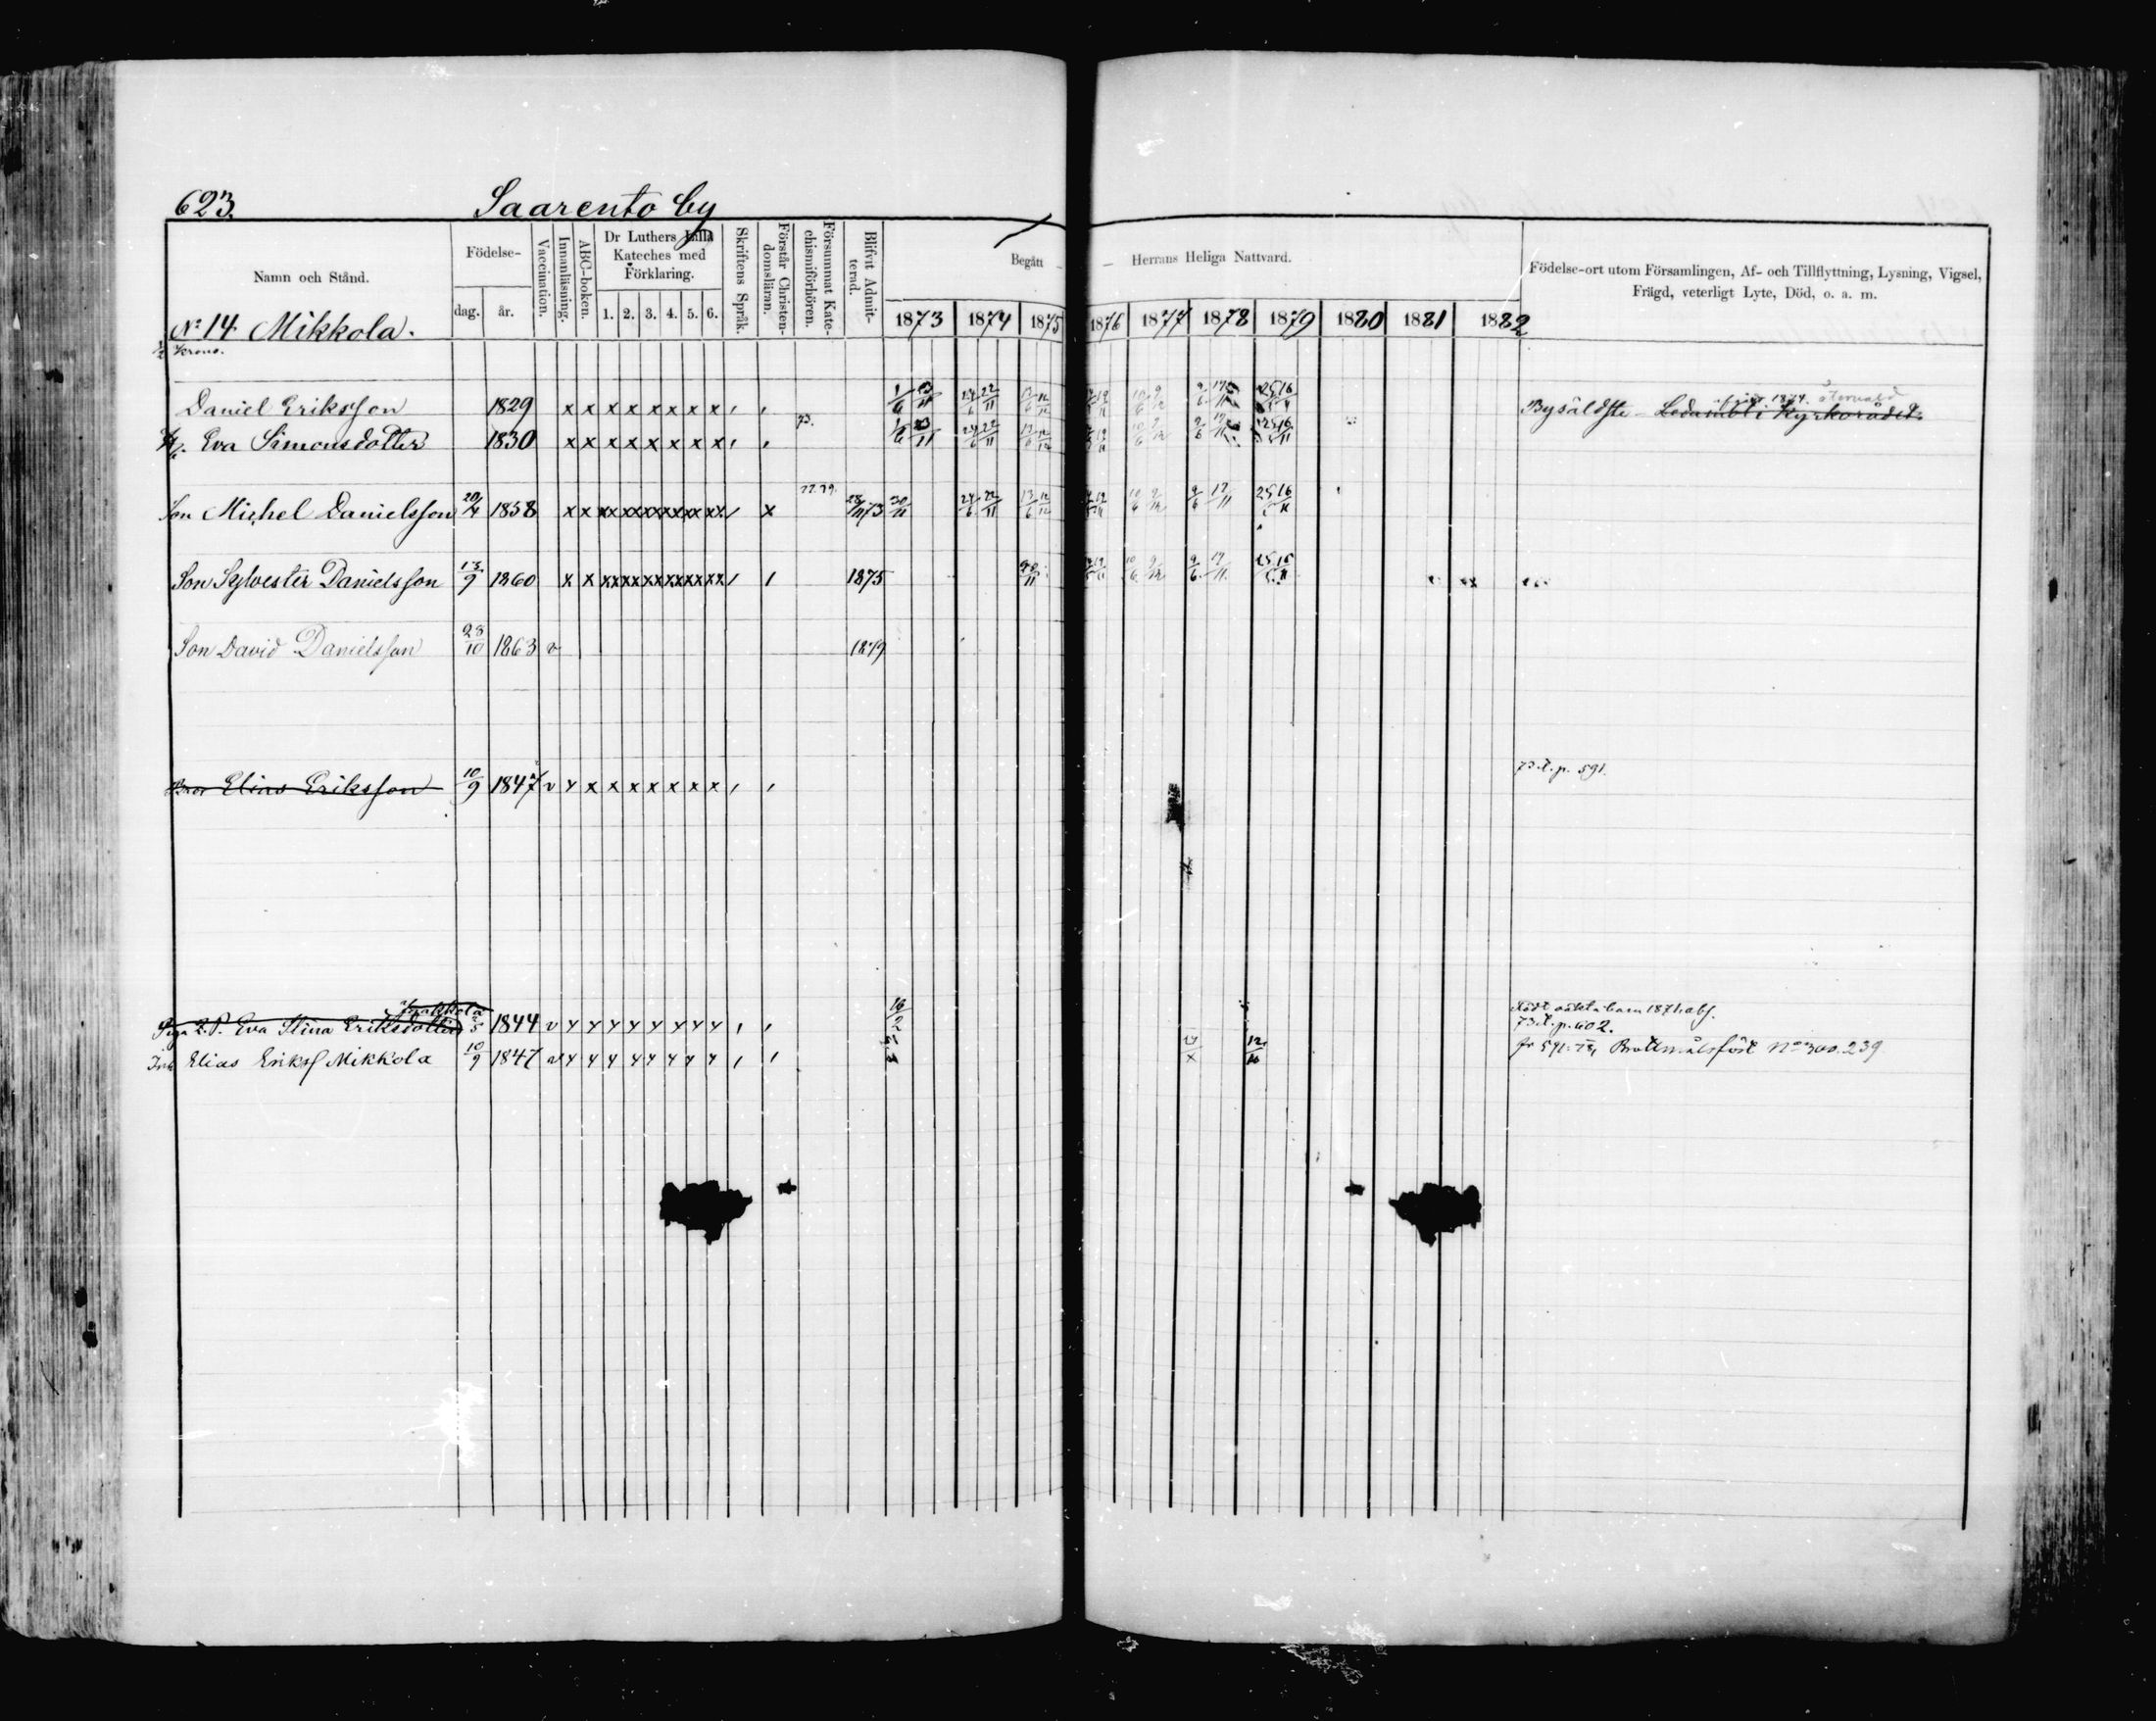 623.
Saarento by
Namn och Stånd.
Födelse-
dag.
år.
Vaccination.
Innanläsning.
ABC-boken.
Dr Luthers Lilla
Kateches med
Förklaring.
1. 2. 3. 4. 5. 6.
Skriftens Språk.
Förstår Christen-
domsläran.
Försummat Kate-
chismiförhören.
Blifvit Admit-
terad.
Begått
Herrans Heliga Nattvard.
1873 1874 1875 1876 1877 1878 1879 1880 1881 1882
Födelse-ort utom Församlingen, Af- och Tillflyttning, Lysning, Vigsel,
Frägd, veterligt Lyte, Död, o. a. m.
No 14. Mikkola.
1/2 krono.
Daniel Eriksson 1829 x x x x x x x x 1/6 23/11 24/6 22/11 Bysäldste - Ledambt i Kyrkorådet.
H. Eva Simonsdotter 1830 x x x x x x x x 73. 1/6 23/11 24/6 22/11
Son Michel Danielsson 20/4 1858 x x xx xx xx xx xx xx x 77.79. 28/11 73 30/11 24/6 22/11 13/6 12/12 9/6 17/11 25/5 16/11
Son Sylvester Danielsson 13/9 1860 x x xx xx xx xx xx xx 1875 9/6 17/11 25/5 16/11
Son David Danielsson 28/10 1863 v 1879
Bror Elias Eriksson 10/9 1847 v y x x x x x x x 73 t. p. 591.
Eva Stina Eriksdotter 1844 v y y y y y y y y 16/2 1871
73 t. p. 602.
Elias Erikss Mikkola 10/9 1847 v y y y y y y y y 12/10 fr 591. Brottmålsfört No 300. 239